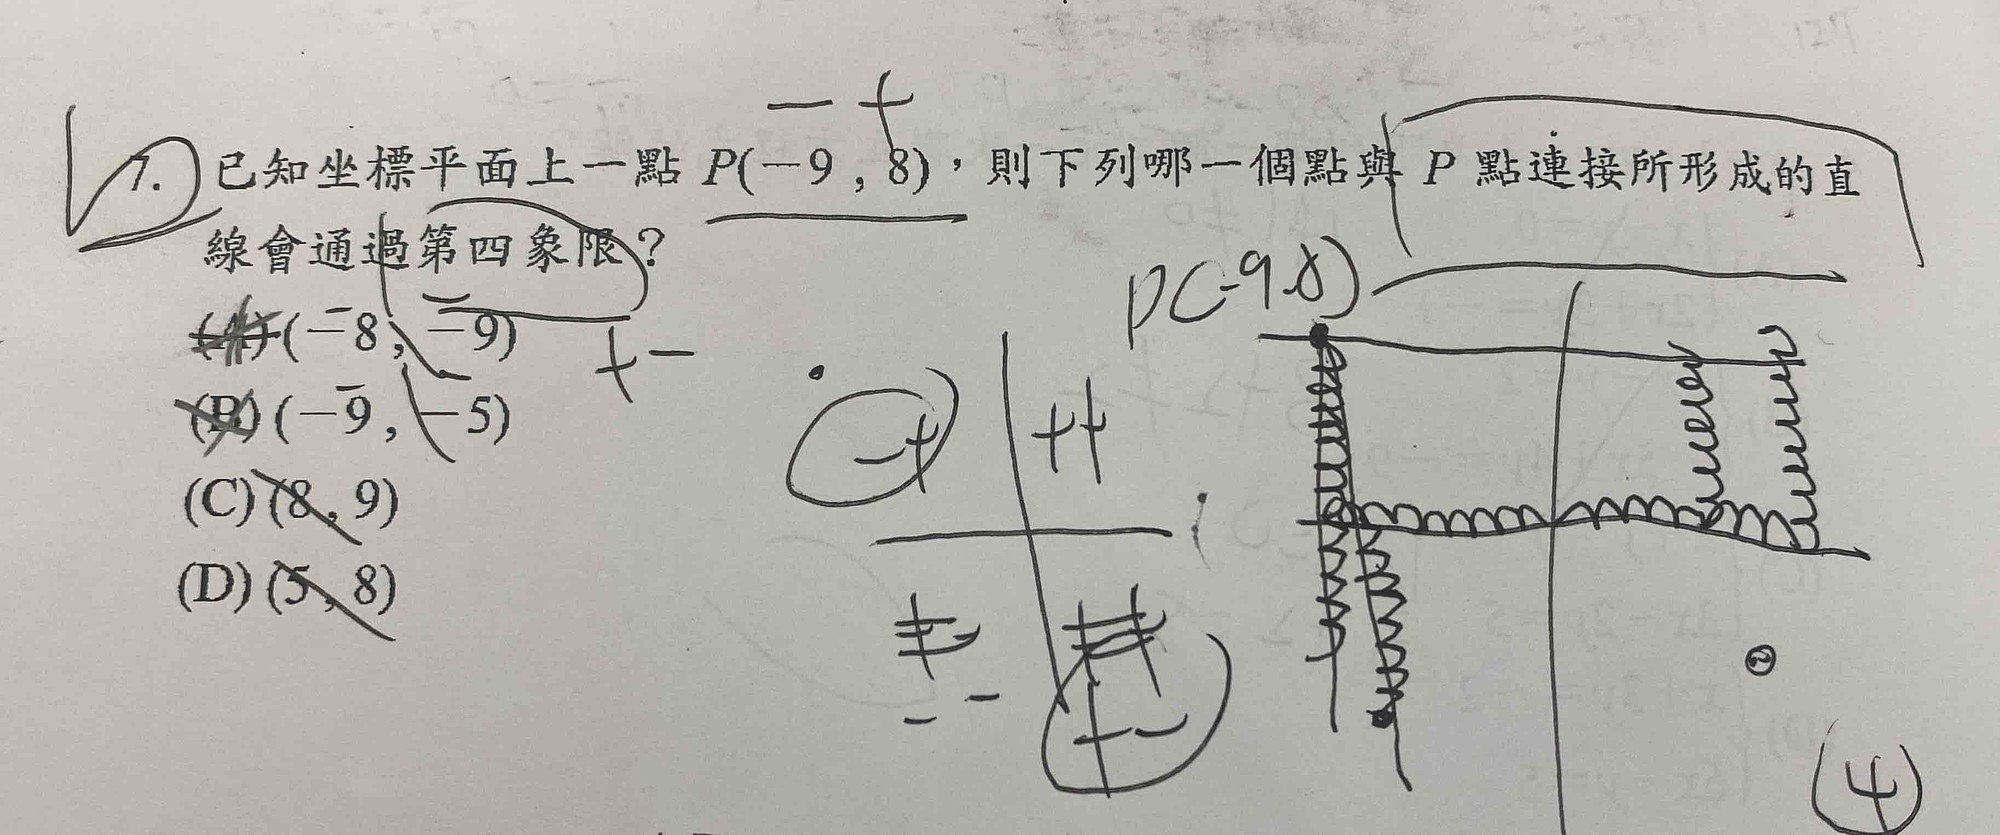 －＋
7. 已知坐標平面上一點 P(－9 , 8)，則下列哪一個點與 P 點連接所形成的直
線會通過第四象限？
(A) (－8 , －9)
＋－
(B) (－9 , －5)
(C) (8 , 9)
(D) (5 , 8)
P(-9.8)
-+ ++
-- +-
4